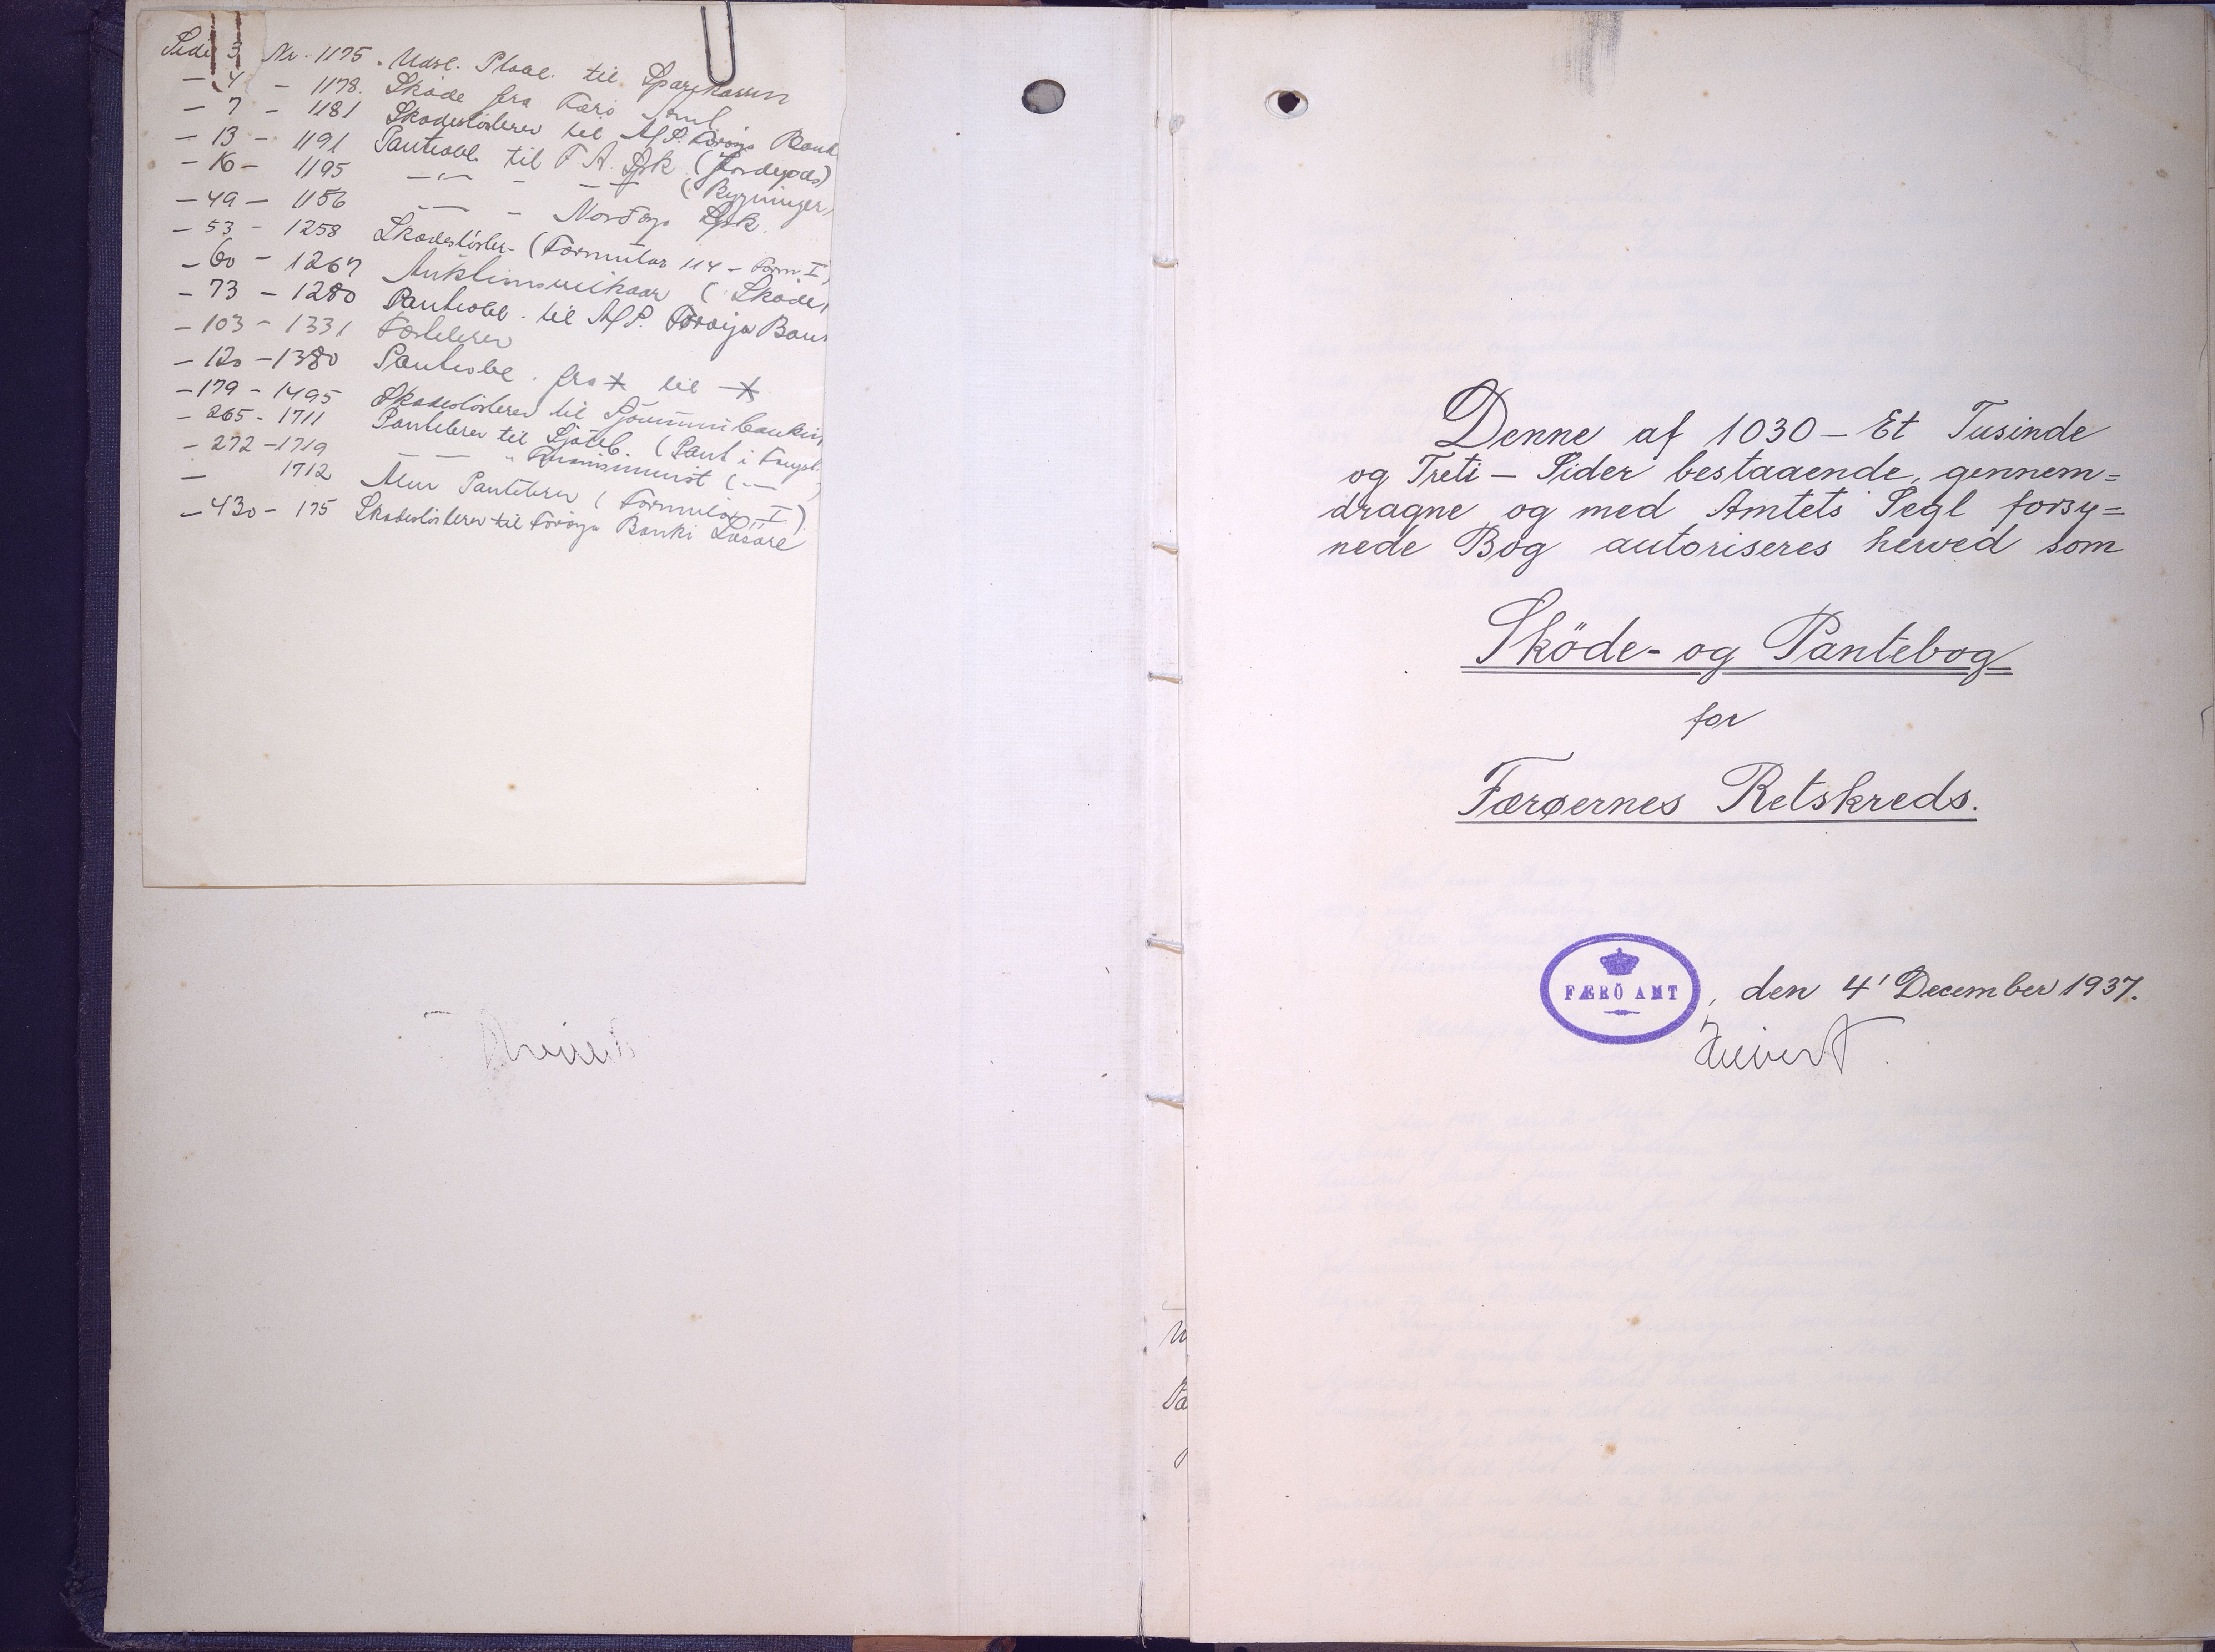 Side 3 Nr. 1175. Udsl. til Sparekassen
— 4 — 1178. Sköde fra Færö Amt
— 7 — 1181 Skadeslösbrev til A/S. Föroya Bank
— 13 — 1191 Panteobl. til F. A. Spk (Jordegods)
— 16 — 1195 —"— — — — (Bygninger)
— 49 — 1186 — — — Nordoya Spk.
— 53 — 1258 Skadeslösbr. (Formular 114 — Form. I)
— 60 — 1267 Auktionsvilkaar (Sköde)
— 73 — 1280 Panteobl. til A/S. Föroya Bank
— 103 — 1331
— 120 — 1380 Panteobl. fra * til *
— 179 — 1495 Skadeslösbrev til Sjóvinnubankin
— 265 — 1711 Pantebrev til (Pant i
— 272 — 1719 — — " (— )
— 1712 Alm Pantebrev (Formular I)
— 430 — 175 Skadeslösbrev til Föroya Banki
Denne af 1030 — Et Tusinde
og Treti — Sider bestaaende, gennem=
dragne og med Amtets Segl forsy=
nede Bog autoriseres herved som
Sköde- og Pantebog
for
Færøernes Retskreds.
FÆRÖ AMT
, den 4' December 1937.